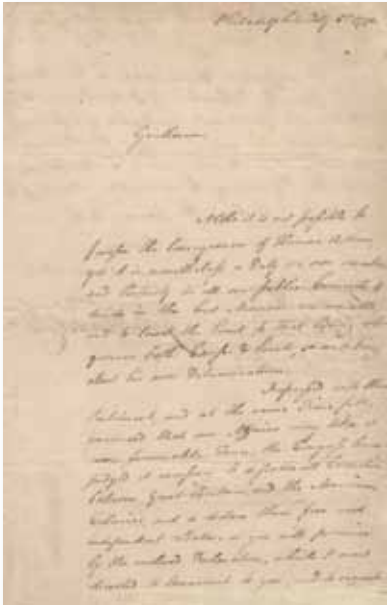 Philadelphia July 6th 1776
Gentlemen,
Altho it is not possible to
foresee the Consequences of Human Actions,
yet it is nevertheless a Duty we owe ourselves
and Posterity in all our public Councils, to
decide in the best Manner we are able
and to trust the Event to that Being, who
both Causes &
about his own Determinations.
Impressed with this
Sentiment, and at the same Time fully
convinced that our Affairs may take a
more favourable Turn, the Congress have
judged it necessary to dissolve all Connection
between Great Britain and the American
Colonies, and to declare them free and
independent States, as you will perceive
by the enclosed Declaration, which I am
directed to transmit to you, and to request